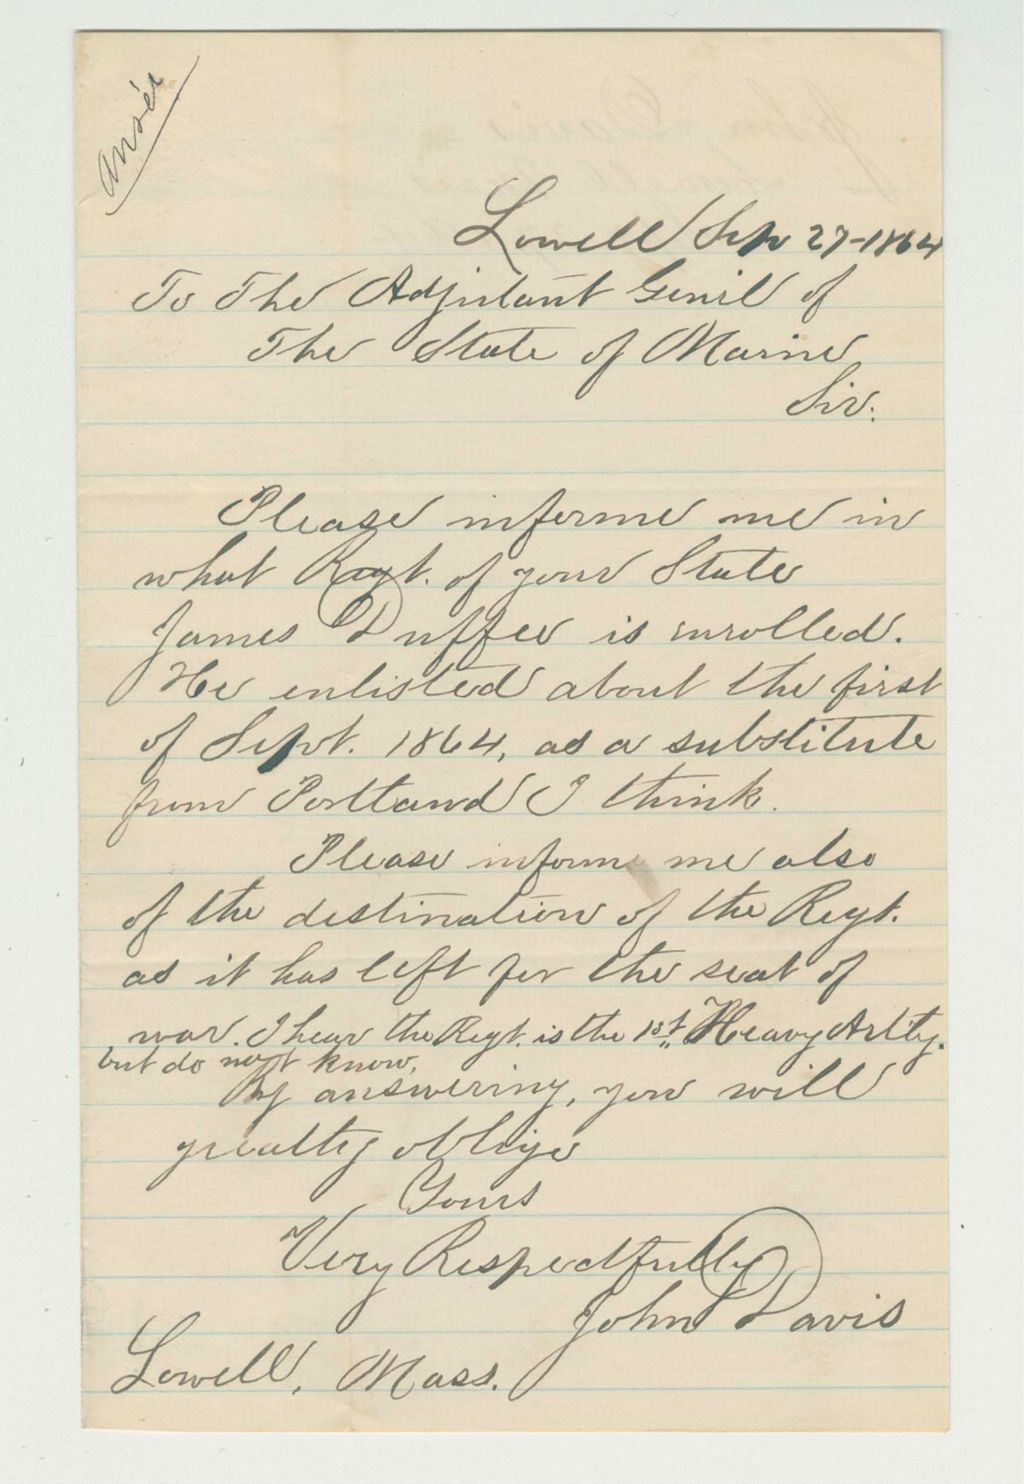 ansd
Lowell Sep 27-1864
To The Adjutant Genrl of
The State of Maine
Sir.
Please informe me in
what Regt. of your State
James Duffee is enrolled.
He enlisted about the first
of Sept. 1864, as a substitute
from Portland I think.
Please inform me also
of the destination of the Regt.
as it has left for the seat of
war. I hear the Regt. is the 1st Heavy Artty.
but do not know,
By answering, you will
greatly oblige
Yours
Very Respectfully
John Davis
Lowell, Mass.